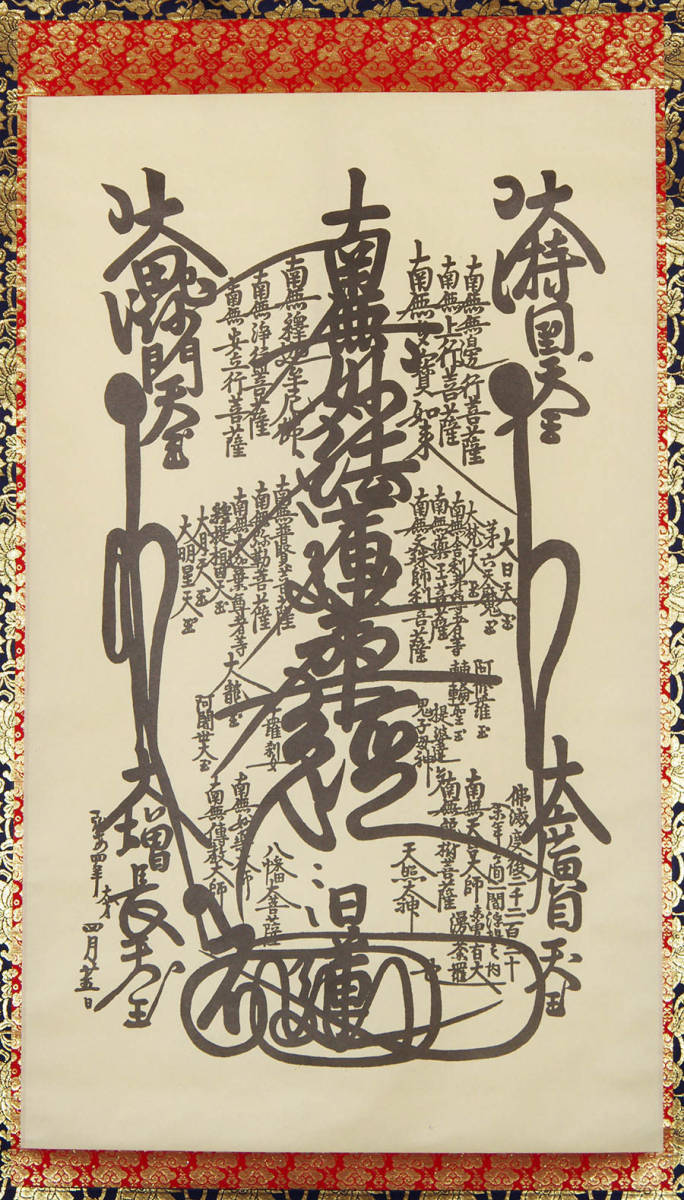 大持国天王
南無無邊行菩薩
南無上行菩薩
南無多寶如来
南無妙法蓮華経
南無釋迦牟尼佛
南無浄行菩薩
南無安立行菩薩
大毘沙門天王
大日天王
第六天魔王
大梵天王
南無舎利弗尊者等
南無薬王菩薩
南無文殊師利菩薩
南無普賢菩薩
南無弥勒菩薩
南無大迦葉尊者等
釋提桓因大王
大月天王
大明星天王
阿修羅王
轉輪聖王
提婆達多
鬼子母神
十羅刹女
大龍王
阿闍世大王
大廣目天王
佛滅度後二千二百二十
余年之間一閻浮提之内
未曾有大
漫荼羅
也
南無天台大師
南無龍樹菩薩
天照大神
日蓮
八幡大菩薩
南無妙楽大師
南無傳教大師
大増長天王
弘安四年太才
四月廿五日